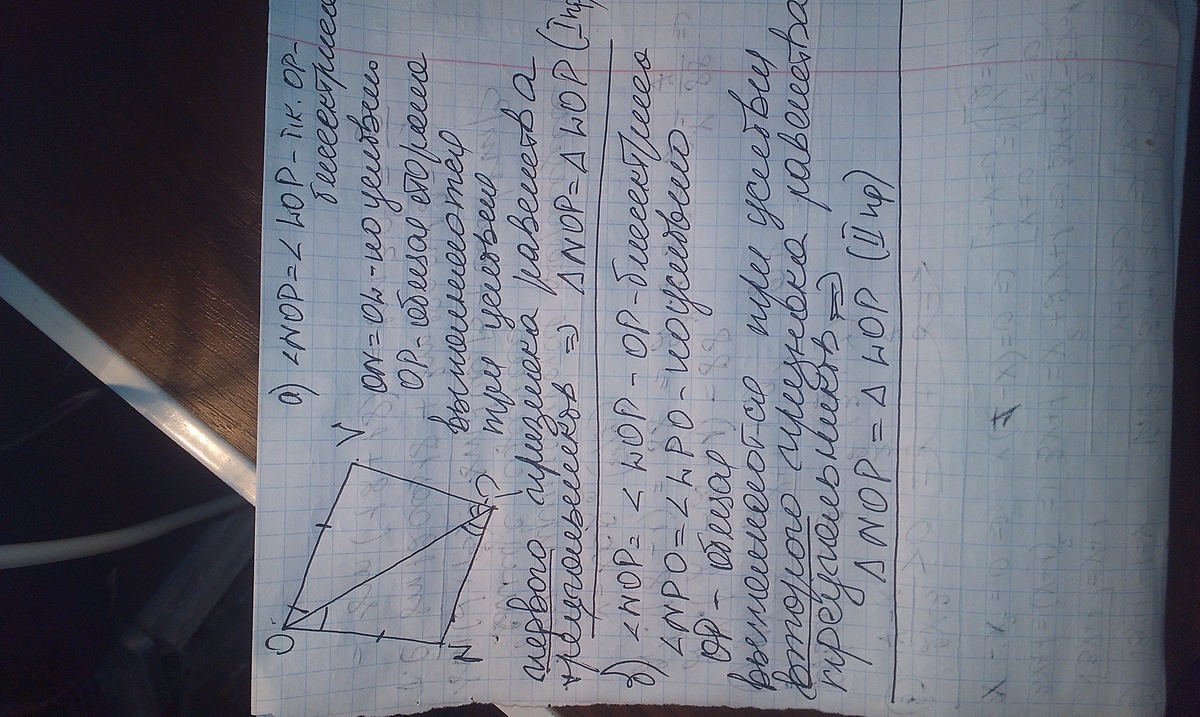 а) <NOP = < LOP - т.к. OP -
биссектриса
ON = OL - по условию
OP - общая сторона
выполняются
три условия
первого признака равенства
треугольников => Δ NOP = Δ LOP (I пр
б) <NOP = < LOP - OP - биссектриса
<NPO = < LPO - по условию
OP - общая
выполняют-ся три условия
второго признака равенства
треугольников =>
Δ NOP = Δ LOP (II пр)
O
N
P